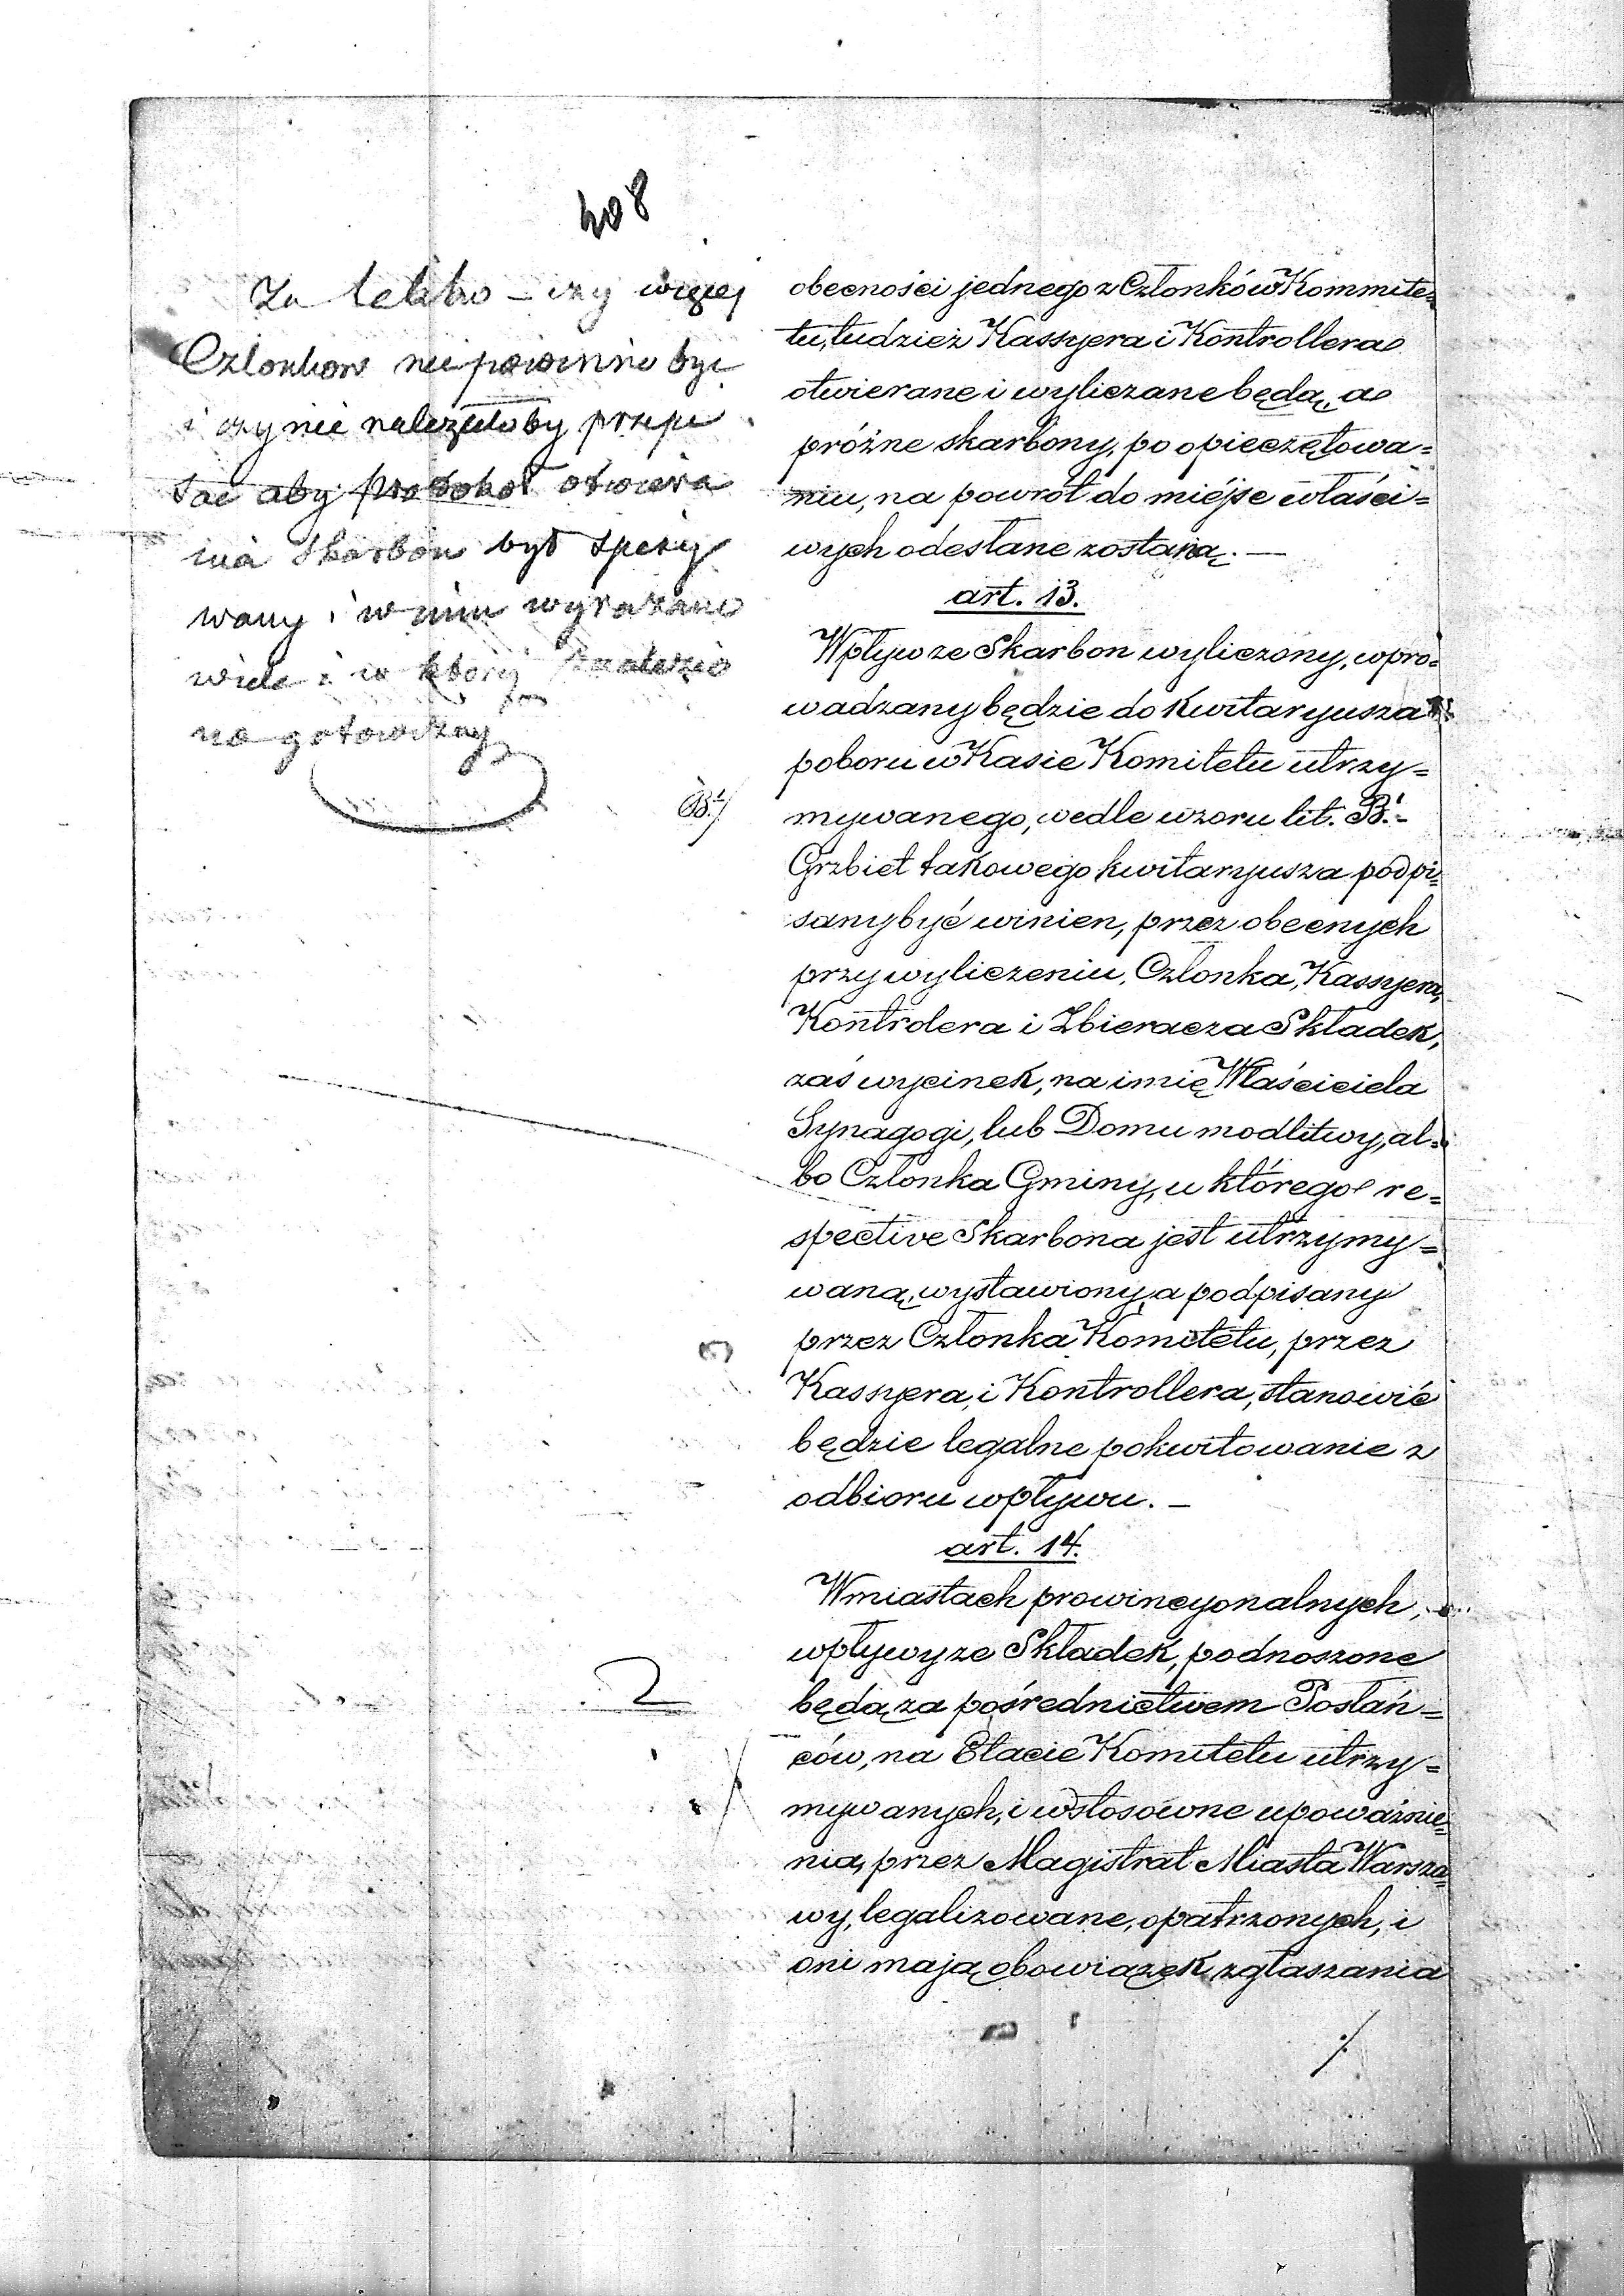 408
Za lekko – czy więcej
Członkow nie powinno być
i czy nie należałoby przepi
sać aby protokoł otwiera
nia skarbon był spisy
wany i w nim wyrażano
wiele i w ktorej znalezio
no gotowizny
obecności jednego z Członków Kommite=
tu, tudzież Kassyera i Kontrollera
otwierane i wyliczane będą, a
próżne skarbony, po opieczętowa=
niu, na powrót do miéjsc właści=
wych odesłane zostaną. —
art. 13.
Wpływ ze Skarbon wyliczony, wpro=
wadzany będzie do Kwitaryusza
poboru w Kasie Komitetu utrzy=
B./
mywanego, wedle wzoru lit. B. -
Grzbiet takowego kwitaryusza podpi=
sany być winien, przez obecnych
przy wyliczeniu, Członka, Kassyera,
Kontrolera i Zbieracza Składek,
zaś wycinek, na imię Właściciela
Synagogi, lub Domu modlitwy, al=
bo Członka Gminy, u którego re=
spective Skarbona jest utrzymy=
waną, wystawiony, a podpisany
przez Członka Komitetu, przez
Kassyera, i Kontrollera, stanowić
będzie legalne pokwitowanie z
odbioru wpływu. –
art. 14.
W miastach prowincyonalnych,
wpływy ze Składek, podnoszone
2
będą za pośrednictwem Posłań=
ców, na Etacie Komitetu utrzy=
mywanych, i w stosowne upoważnie=
nia, przez Magistrat Miasta Warsza=
wy, legalizowane, opatrzonych, i
oni mają obowiązek zgłaszania
./.